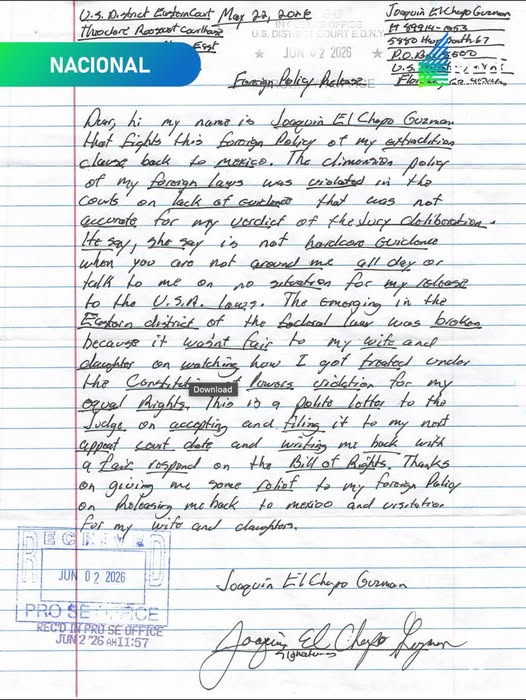 U.S. District Eastern Court May 22, 2026
Joaquin El Chapo Guzman
Theodore Roosevelt Courthouse
# 89914-053
East
5880 Hwy South 67
P.O. Box 8500
U.S.
Florence, Co.
IN CLERK'S OFFICE
U.S. DISTRICT COURT E.D.N.Y.
★ JUN 02 2026 ★
NACIONAL
Foreign Policy Release
Dear, hi my name is Joaquin El Chapo Guzman
that fights this foreign Policy of my extradition
clause back to mexico. The dimension policy
of my foreign laws was violated in the
courts on lack of evidence that was not
accurate for my verdict of the Jury deliberation.
He say, she say is not hardcore evidence
when you are not around me all day or
talk to me on no situation for my release
to the U.S.A. laws. The emerging in the
Eastern district of the federal law was broken
because it wasn't fair to my wife and
daughter on watching how I got treated under
the Constitution of Powers violation for my
Download
equal Rights. This is a polite letter to the
Judge on accepting and filing it to my next
appeal court date and writing me back with
a fair respond on the Bill of Rights. Thanks
on giving me some relief to my foreign Policy
on Releasing me back to mexico and visitation
for my wife and daughters.
RECEIVED
JUN 02 2026
PRO SE OFFICE
REC'D IN PRO SE OFFICE
JUN 2 '26 AM11:57
Joaquin El Chapo Guzman
Joaquin El Chapo Guzman
signature